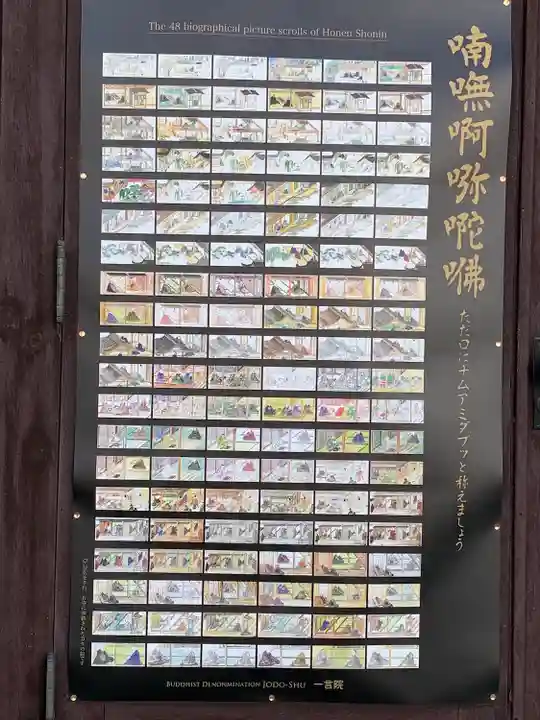 The 48 biographical picture scrolls of Honen Shonin
喃嘸啊哪㖿咈
ただ口にナムアミダブツと称えましょう
BUDDHIST DENOMINATION JODO-SHU 一言院